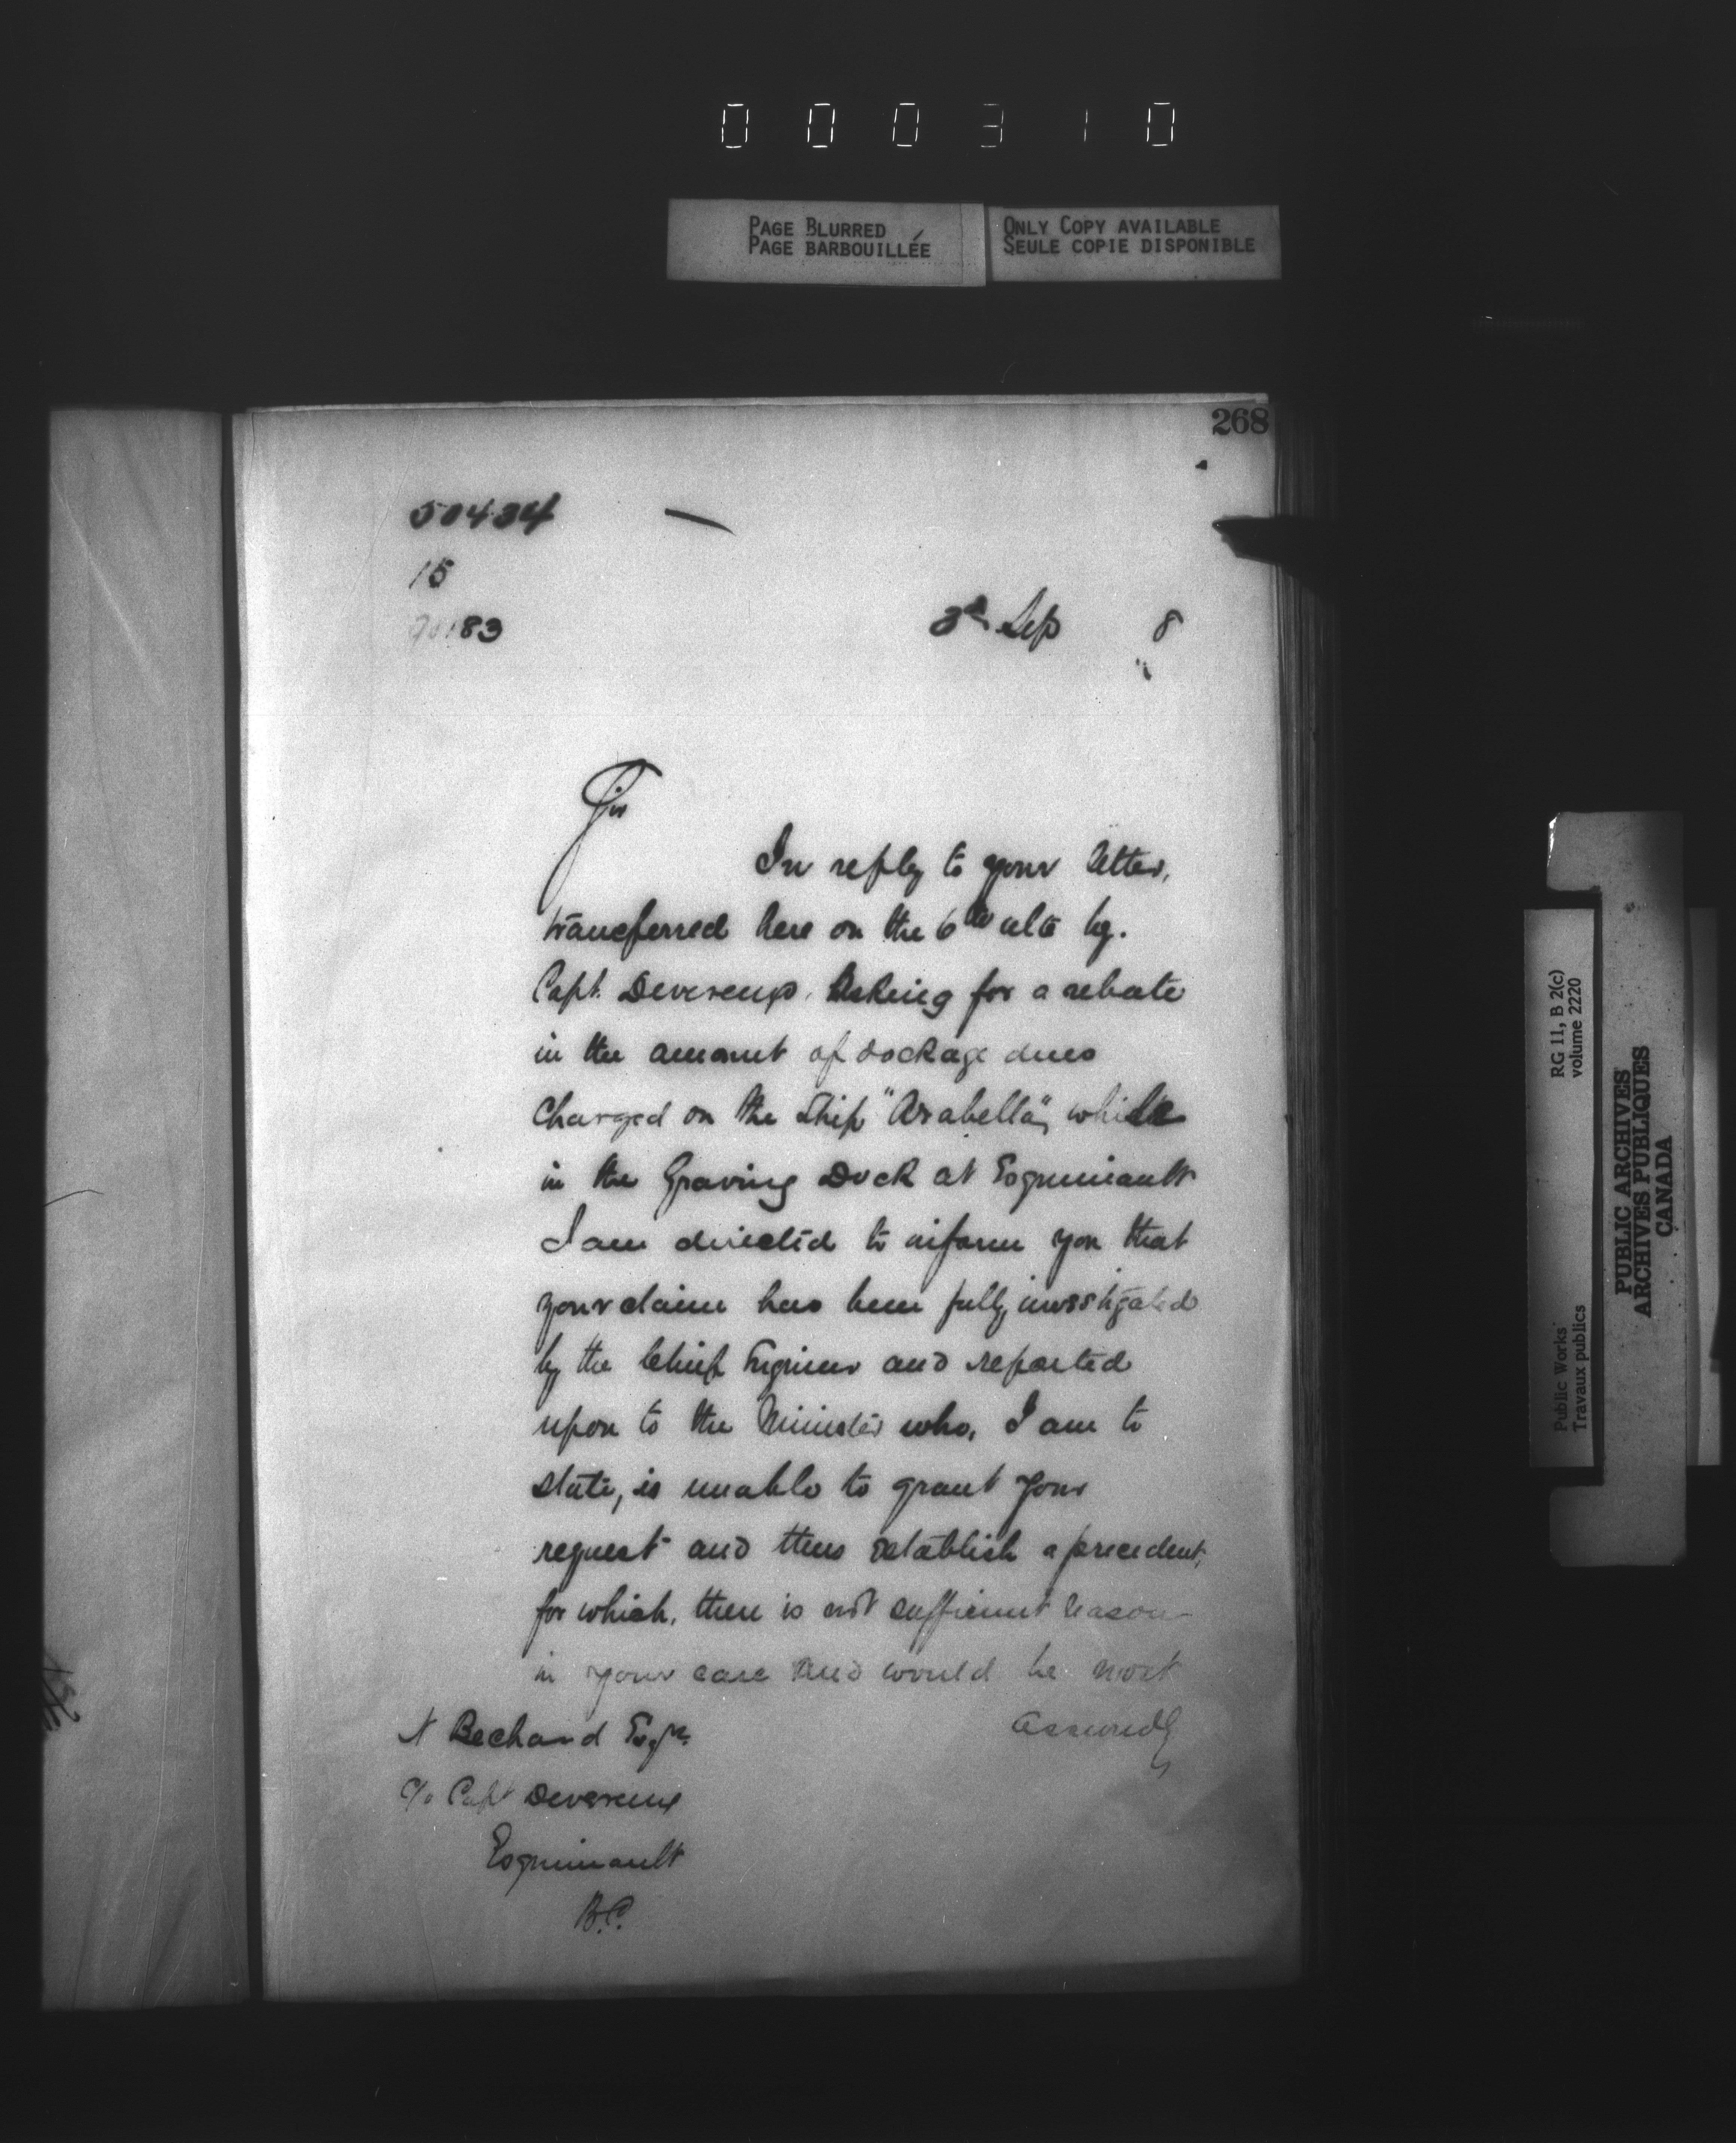 000310
PAGE BLURRED
PAGE BARBOUILLÉE
ONLY COPY AVAILABLE
SEULE COPIE DISPONIBLE
268
50434
15
83
3rd Sep 8
Sir
In reply to your letter,
transferred here on the 6th ulto by
Capt. Devereux, Asking for a rebate
in the amount of dockage dues
charged on the Ship "Arabella", while
in the Graving Dock at Esquimault
I am directed to inform you that
your claim has been fully investigated
by the Chief Engineer and reported
upon to the Minister who, I am to
state, is unable to grant your
request and thus establish a precedent,
for which, there is not sufficient reason
in your case and would be most
assuredly
N Bechard Esqre.
c/o Capt Devereux
Esquimault
B.C.
RG 11, B 2(c)
volume 2220
Public Works
Travaux publics
PUBLIC ARCHIVES
ARCHIVES PUBLIQUES
CANADA